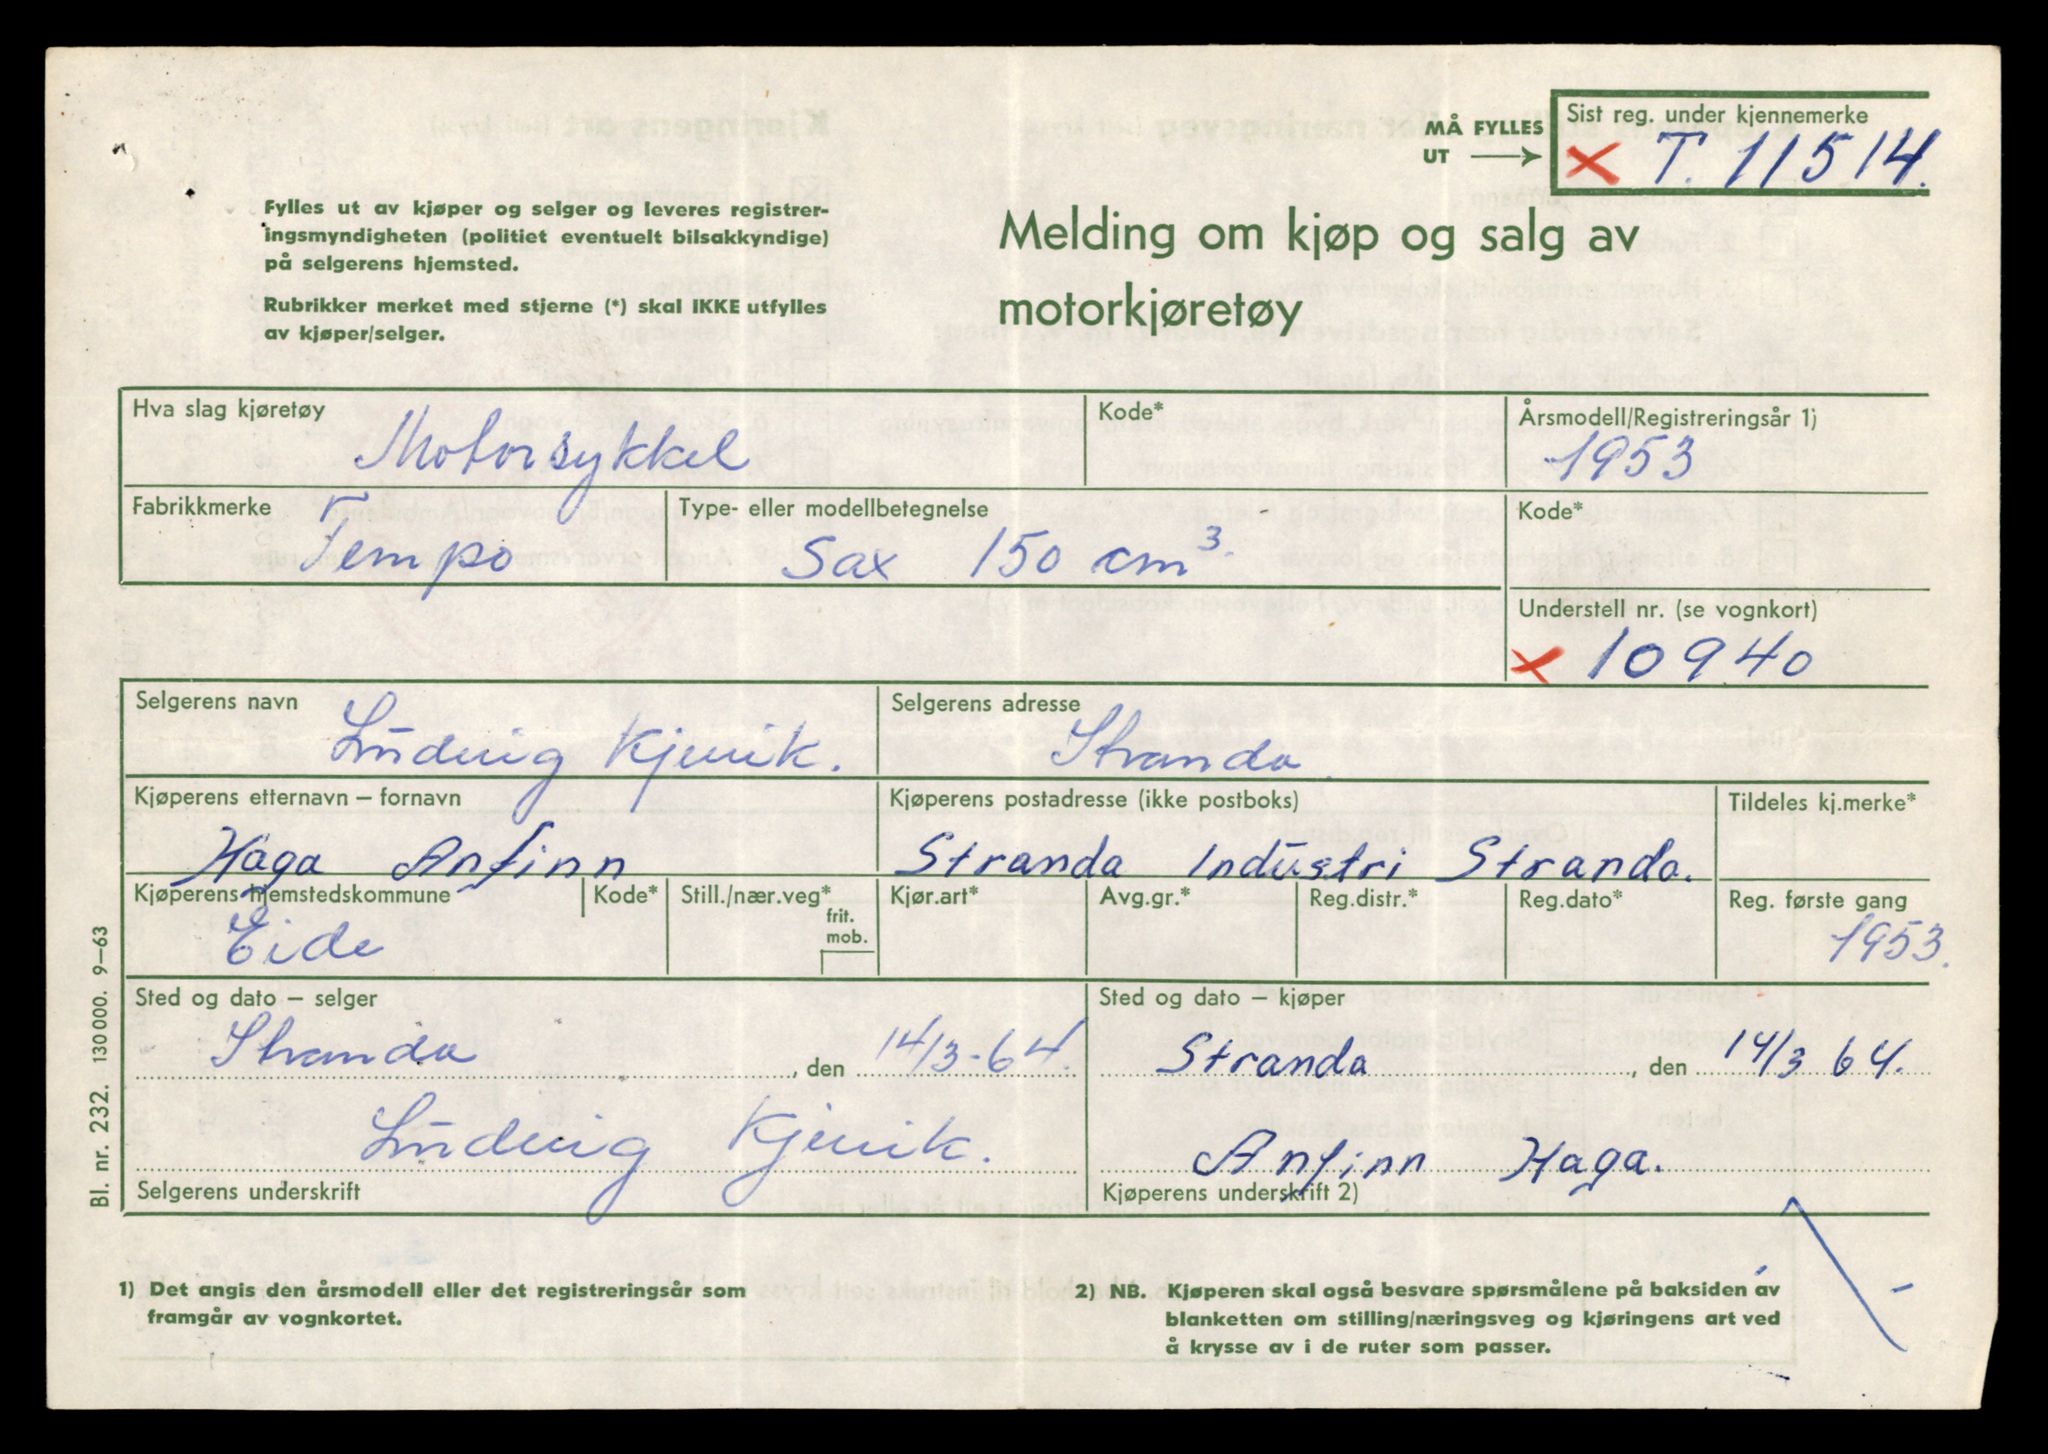 MÅ FYLLES UT
Sist reg. under kjennemerke
x T. 11514.
Fylles ut av kjøper og selger og leveres registrer-
ingsmyndigheten (politiet eventuelt bilsakkyndige)
på selgerens hjemsted.
Rubrikker merket med stjerne (*) skal IKKE utfylles
av kjøper/selger.
Melding om kjøp og salg av
motorkjøretøy
Hva slag kjøretøy
Motorsykkel
Kode*
Årsmodell/Registreringsår 1)
1953
Fabrikkmerke
Tempo
Type- eller modellbetegnelse
Sax 150 cm³.
Kode*
Understell nr. (se vognkort)
x 10940
Selgerens navn
Ludvig Kjervik.
Selgerens adresse
Stranda.
Kjøperens etternavn – fornavn
Haga Anfinn
Kjøperens postadresse (ikke postboks)
Stranda Industri Stranda.
Tildeles kj.merke*
Kjøperens hjemstedskommune
Eide
Kode*
Still./nær.veg*
frit.
mob.
Kjør.art*
Avg.gr.*
Reg.distr.*
Reg.dato*
Reg. første gang
1953.
Sted og dato – selger
Stranda, den 14/3-64.
Ludvig Kjervik.
Selgerens underskrift
Sted og dato – kjøper
Stranda, den 14/3 64.
Anfinn Haga.
Kjøperens underskrift 2)
Bl. nr. 232. 130 000. 9–63
1) Det angis den årsmodell eller det registreringsår som
framgår av vognkortet.
2) NB. Kjøperen skal også besvare spørsmålene på baksiden av
blanketten om stilling/næringsveg og kjøringens art ved
å krysse av i de ruter som passer.